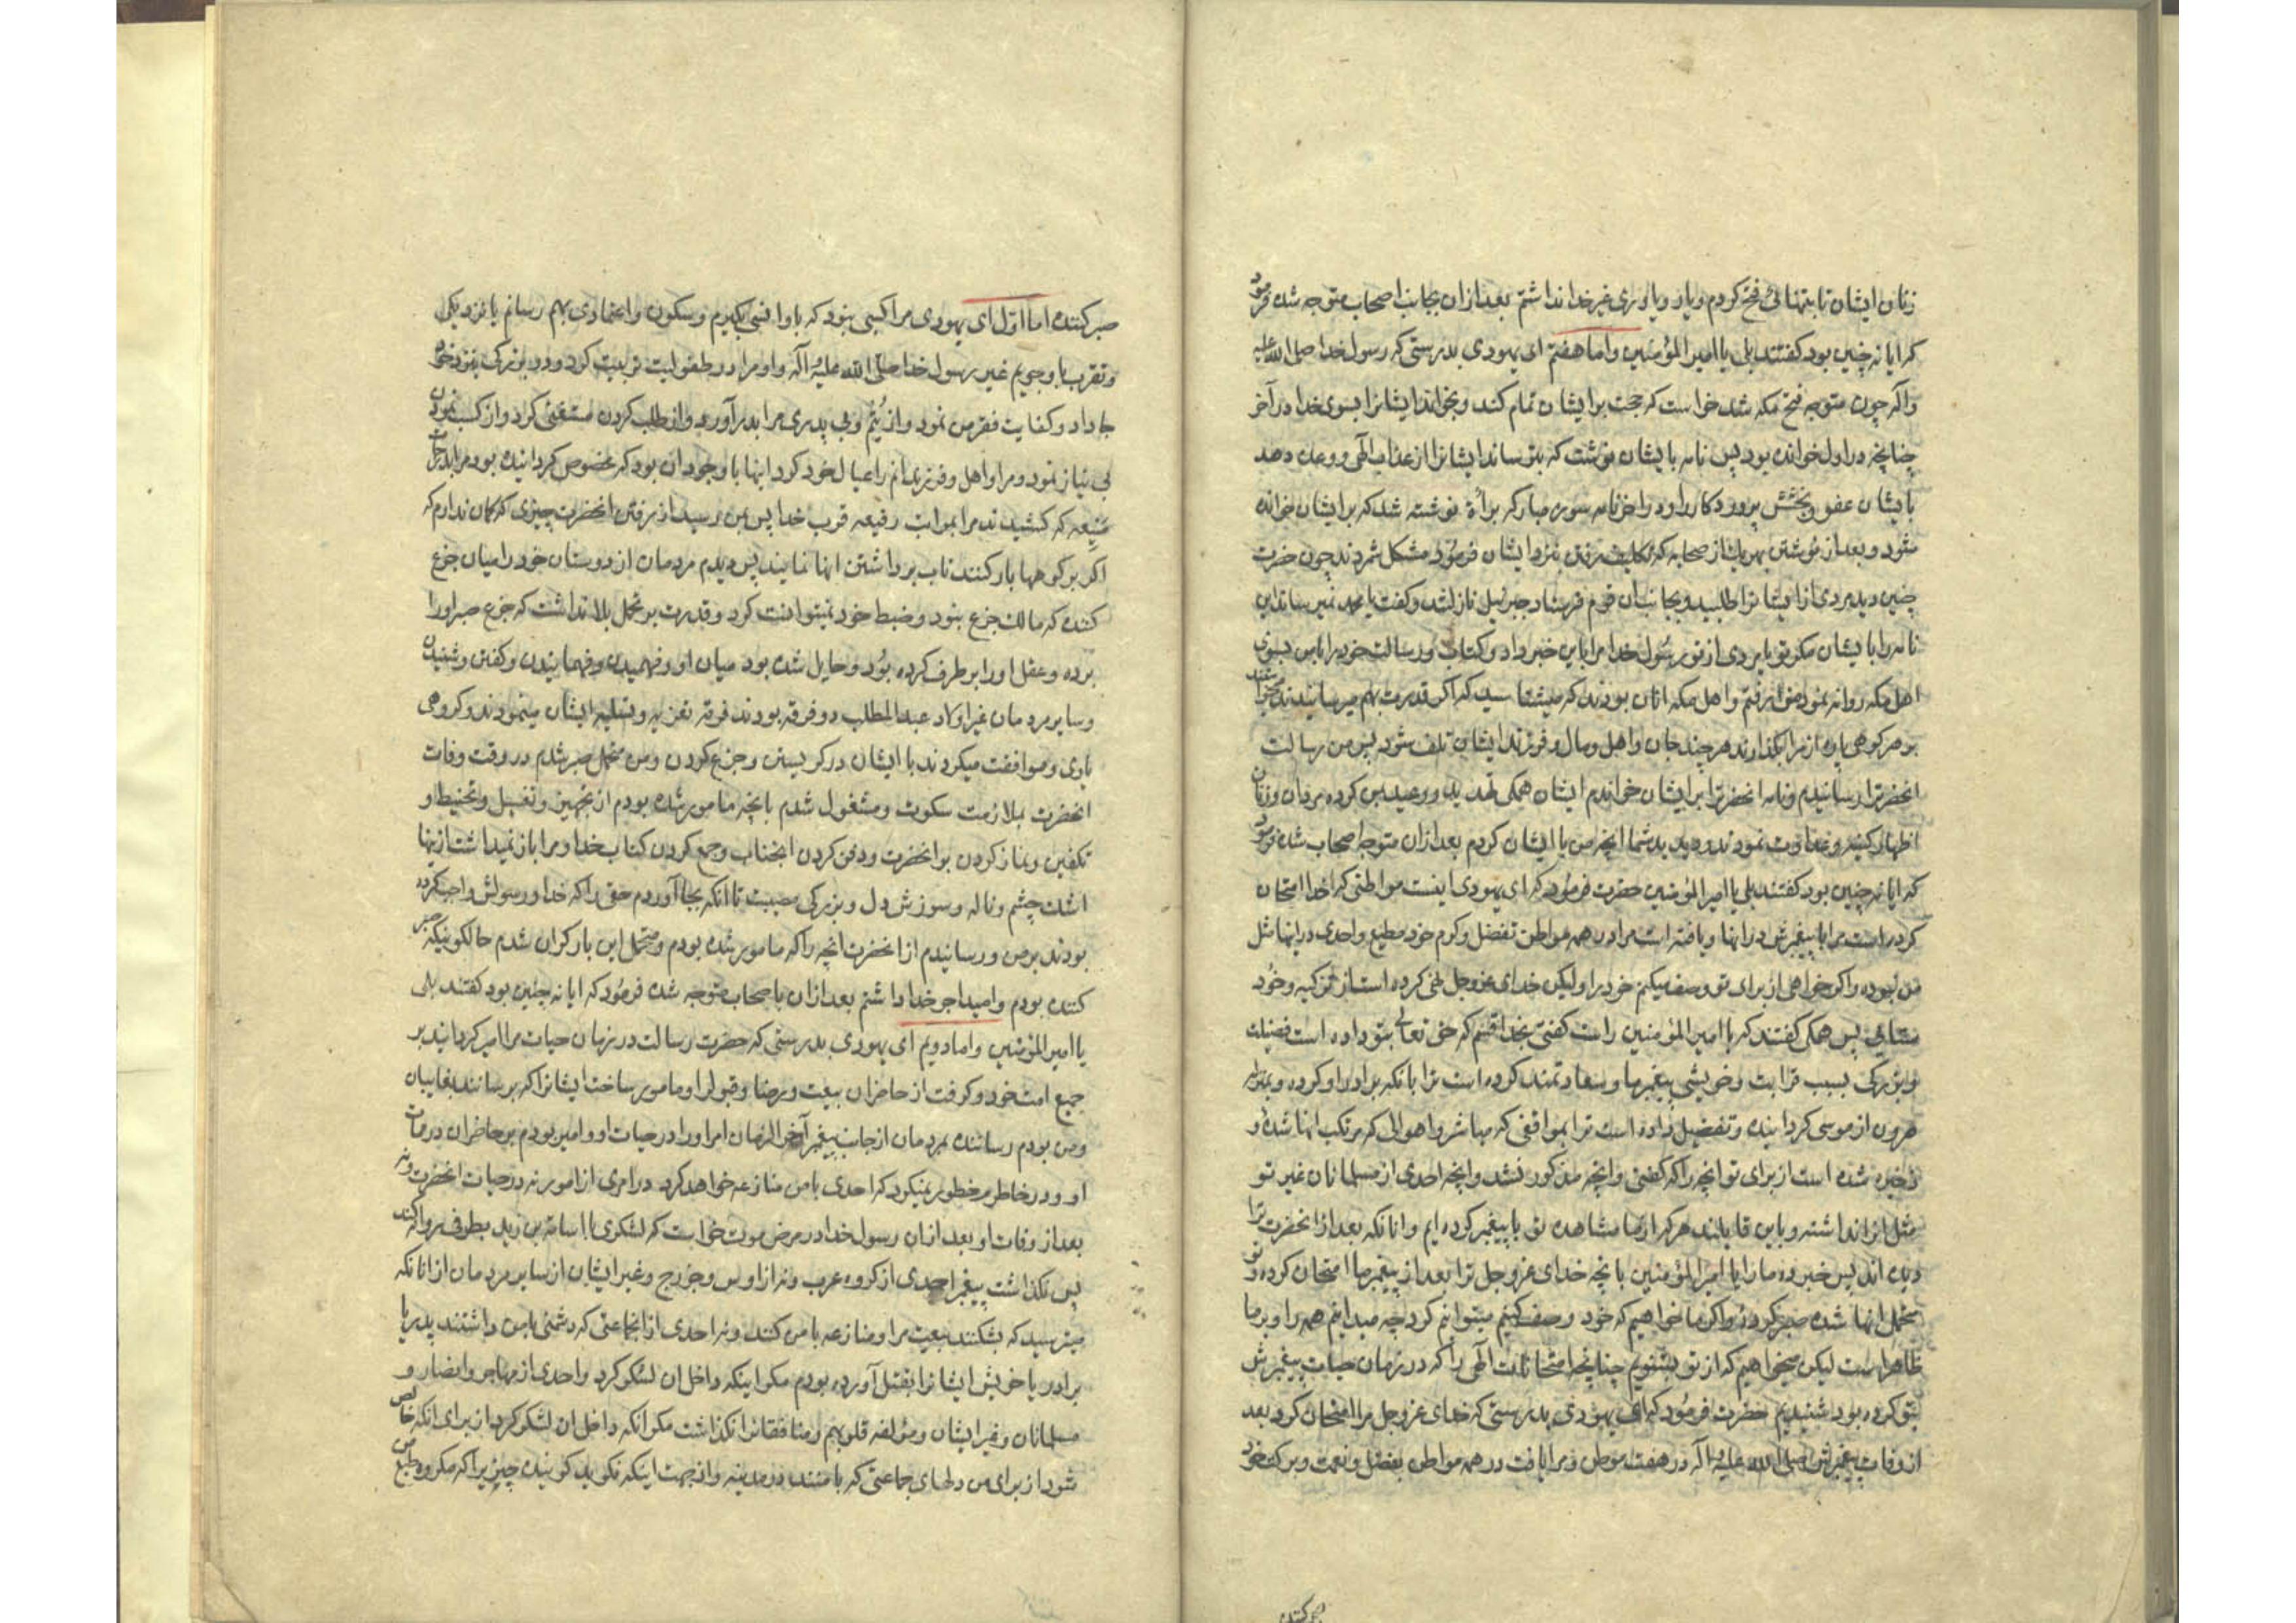 زنان ایشان تا بتنهائی فتح کردم و یار و یاوری غیر خدا نداشتم بعد ازان بجانب اصحاب متوجه شده فرمود
که ایا نه چنین بود کفتند بلی یا امیر المؤمنین واما هفتم ای یهودی بدرستی که رسول خدا صلی الله علیه
واله چون متوجه فتح مکه شد خواست که حجت بر ایشان تمام کند و بخواند ایشانرا بسوی خدا در آخر
چنانچه در اول خوانده بود پس نامه بایشان نوشت که بترساند ایشانرا از عذاب الهی و وعده دهد
بایشان عفو و بخشش پروردکار را و در اخر نامه سوره مبارکه براءة نوشته شد که بر ایشان خوانده
شود و بعد از نوشتن بهر یک از صحابه که تکلیف رفتن بنزد ایشان فرمود مشکل شمردند چون حضرت
چنین دید مردی از ایشانرا طلبید و بجانب ان قوم فرستاد جبرئیل نازل شد و کفت یا محمد نمیرساند این
نامه را بایشان مکر تو یا مردی از تو رسول خدا مرا باین خبر داد و کتاب و رسالت خود را بامن بسوی
اهل مکه روانه نمود من رفتم و اهل مکه انان بودند که میشناسید که اکر قدرت بهم میرسانیدند میخواستند
بر هر کوهی پاره از مرا بکذارند هر چند جان و اهل و مال و فرزند ایشان تلف شود پس من رسالت
انحضرترا رسانیدم و نامه انحضرترا بر ایشان خواندم ایشان همکی تهدید و وعید من کرده مردان و زنان
اظهار کینه و عداوت نمودند و دیدید شما انچه من با ایشان کردم بعد ازان متوجه اصحاب شده فرمود
که ایا نه چنین بود کفتند بلی یا امیر المؤمنین حضرت فرمود که ای یهودی اینست مواطنی که خدا امتحان
کرده است مرا با پیغمبرش در انها و یافته است مرا در همه مواطن تفضل و کرم خود مطیع و احدی در انها مثل
من نبوده و اکر خواهی از برای تو وصف میکنم خود را ولیکن خدای عز و جل نهی کرده است از تزکیه و خود
ستائی پس همکی کفتند که یا امیر المؤمنین راست کفتی بخدا قسم که حق تعالی بتو داده است فضیلت
و بزرکی بسبب قرابت و خویشی پیغمبر ما و سعادتمند کرده است ترا بانکه برادر او کرده و بمنزله
هرون از موسی کردانیده و تفضیل داده است ترا بمواقفی که مباشر و اهوالی که مرتکب انها شده و
ذخیره شده است از برای تو انچه را که کفتی و انچه مذکور نشد و انچه احدی از مسلمانان غیر تو
مثل انرا نداشته و باین قایلند هر که از ما مشاهده تو با پیغمبر کرده ایم و انانکه بعد از انحضرت ترا
دیده اند پس خبر ده ما را یا امیر المؤمنین بانچه خدای عز و جل ترا بعد از پیغمبر ما امتحان کرده و تو
متحمل انها شده صبر کرده و اکر ما خواهیم که خود وصف کنیم میتوانیم کرد چه میدانیم همه را و بر ما
ظاهر است لیکن میخواهیم که از تو بشنویم چنانچه امتحانات الهی را که در زمان حیات پیغمبرش
بتو کرده بود شنیدیم حضرت فرمود که ای یهودی بدرستی که خدای عز و جل مرا امتحان کرد بعد
از وفات پیغمبرش صلی الله علیه و آله در هفت موطن و مرا یافت در همه مواطن بفضل و نعمت و برکت خود
صبر کننده
صبر کننده اما اول ای یهودی مرا کسی نبود که باو انسی بکیرم و سکون و اعتمادی بهم رسانم یا نزدیکی
و تقرب باو جویم غیر رسول خدا صلی الله علیه و آله و او مرا در طفولیت تربیت کرد و در بزرکی بنزد خود
جا داد و کفایت فقر من نمود و از یتم و بی پدری مرا بدر آورد و از طلب کردن مستغنی کرد و از کسب نمودن
بی نیاز نمود و مرا و اهل و فرزندانم را عیال خود کرد اینها با وجود ان بود که مخصوص کردانیده بود مرا بدرجات
منیعه که کشیدند مرا بمراتب رفیعه قرب خدا پس بمن رسید از رفتن انحضرت چیزی که کمان ندارم که
اکر بر کوهها بار کنند تاب برداشتن انها نمایند پس دیدم مردمان از دوستان خود را میان جزع
کننده که مالک جزع نبود و ضبط خود نمیتوانست کرد و قدرت بر تحمل بلا نداشت که جزع صبر او را
برده و عقل او را برطرف کرده بود و حایل شده بود میان او و فهمیدن و فهمانیدن و کفتن و شنیدن
و سایر مردمان غیر اولاد عبد المطلب دو فرقه بودند فرقه تعزیه و تسلیه ایشان مینمودند و کروهی
یاری و موافقت میکردند با ایشان در کریستن و جزع کردن و من متحمل صبر شدم در وقت وفات
انحضرت بملازمت سکوت و مشغول شدم بانچه مامور شده بودم از تجهیز و تغسیل و تحنیط و
تکفین و نماز کردن بر انحضرت و دفن کردن انجناب و جمع کردن کتاب خدا و مرا باز نمیداشت از ینها
اشک چشم و ناله و سوزش دل و بزرکی مصیبت تا انکه بجا آوردم حقی را که خدا و رسولش واجب کرده
بودند بر من و رسانیدم از انحضرت انچه را که مامور شده بودم و متحمل این بار کران شدم حالکونیکه صبر
کننده بودم و امید اجر خدا داشتم بعد ازان باصحاب متوجه شده فرمود که ایا نه چنین بود کفتند بلی
یا امیر المؤمنین واما دویم ای یهودی بدرستی که حضرت رسالت در زمان حیات مرا امیر کردانید بر
جمیع امت خود و کرفت از حاضران بیعت و رضا و قبول را و مامور ساخت ایشانرا که برسانند بغایبان
و من بودم رساننده بمردمان از جانب پیغمبر آخر الزمان امر او را در حیات او و امین بودم بر حاضران در ممات
او و در خاطرم خطور نمیکرد که احدی با من منازعه خواهد کرد در امری از امور نه در حیات انحضرت و نه
بعد از وفات او بعد ازان رسول خدا در مرض موت خواست که لشکری با اسامة بن زید بطرفی روانه کند
پس نکذاشت پیغمبر احدی از کروه عرب و نه از اوس و خزرج و غیر ایشان از سایر مردمان از انانکه
میترسید که بشکنند بیعت مرا و منازعه با من کنند و نه احدی از انجماعتی که دشمنی با من داشتند پدر یا
برادر یا خویش ایشانرا بقتل آورده بودم مکر اینکه داخل ان لشکر کرد و احدی از مهاجر و انصار و
مسلمانان و غیر ایشان و مؤلفه قلوبهم و منافقانرا نکذاشت مکر انکه داخل ان لشکر کرد از برای انکه خالص
شود از برای من دلهای جماعتی که با منند در مدینه و از جهت اینکه نکوید کوینده چیزیرا که مکروه طبع من